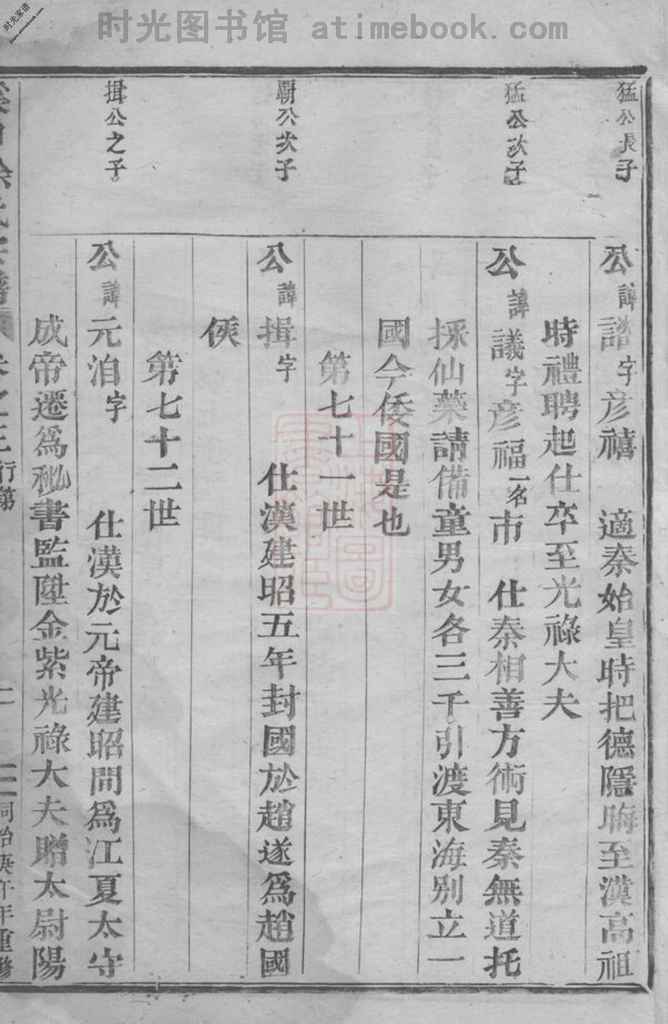 时光图书馆 - atimebook.com
时光家谱
www.atimebook.com
猛公長子
公諱諮字彦禧 適秦始皇時抱德隱晦至漢高祖
時禮聘起仕卒至光祿大夫
猛公次子
公諱議字彦福一名市 仕秦相善方術見秦無道托
採仙藥請備童男女各三千引渡東海别立一
國今倭國是也
第七十一世
嗣公次子
公諱揖字 仕漢建昭五年封國於趙遂爲趙國
侯
第七十二世
揖公之子
公諱元洎字 仕漢於元帝建昭間爲江夏太守
成帝遷爲秘書監陞金紫光祿大夫贈太尉陽
徐氏宗譜 卷之三 行第 二 同治庚午年重修